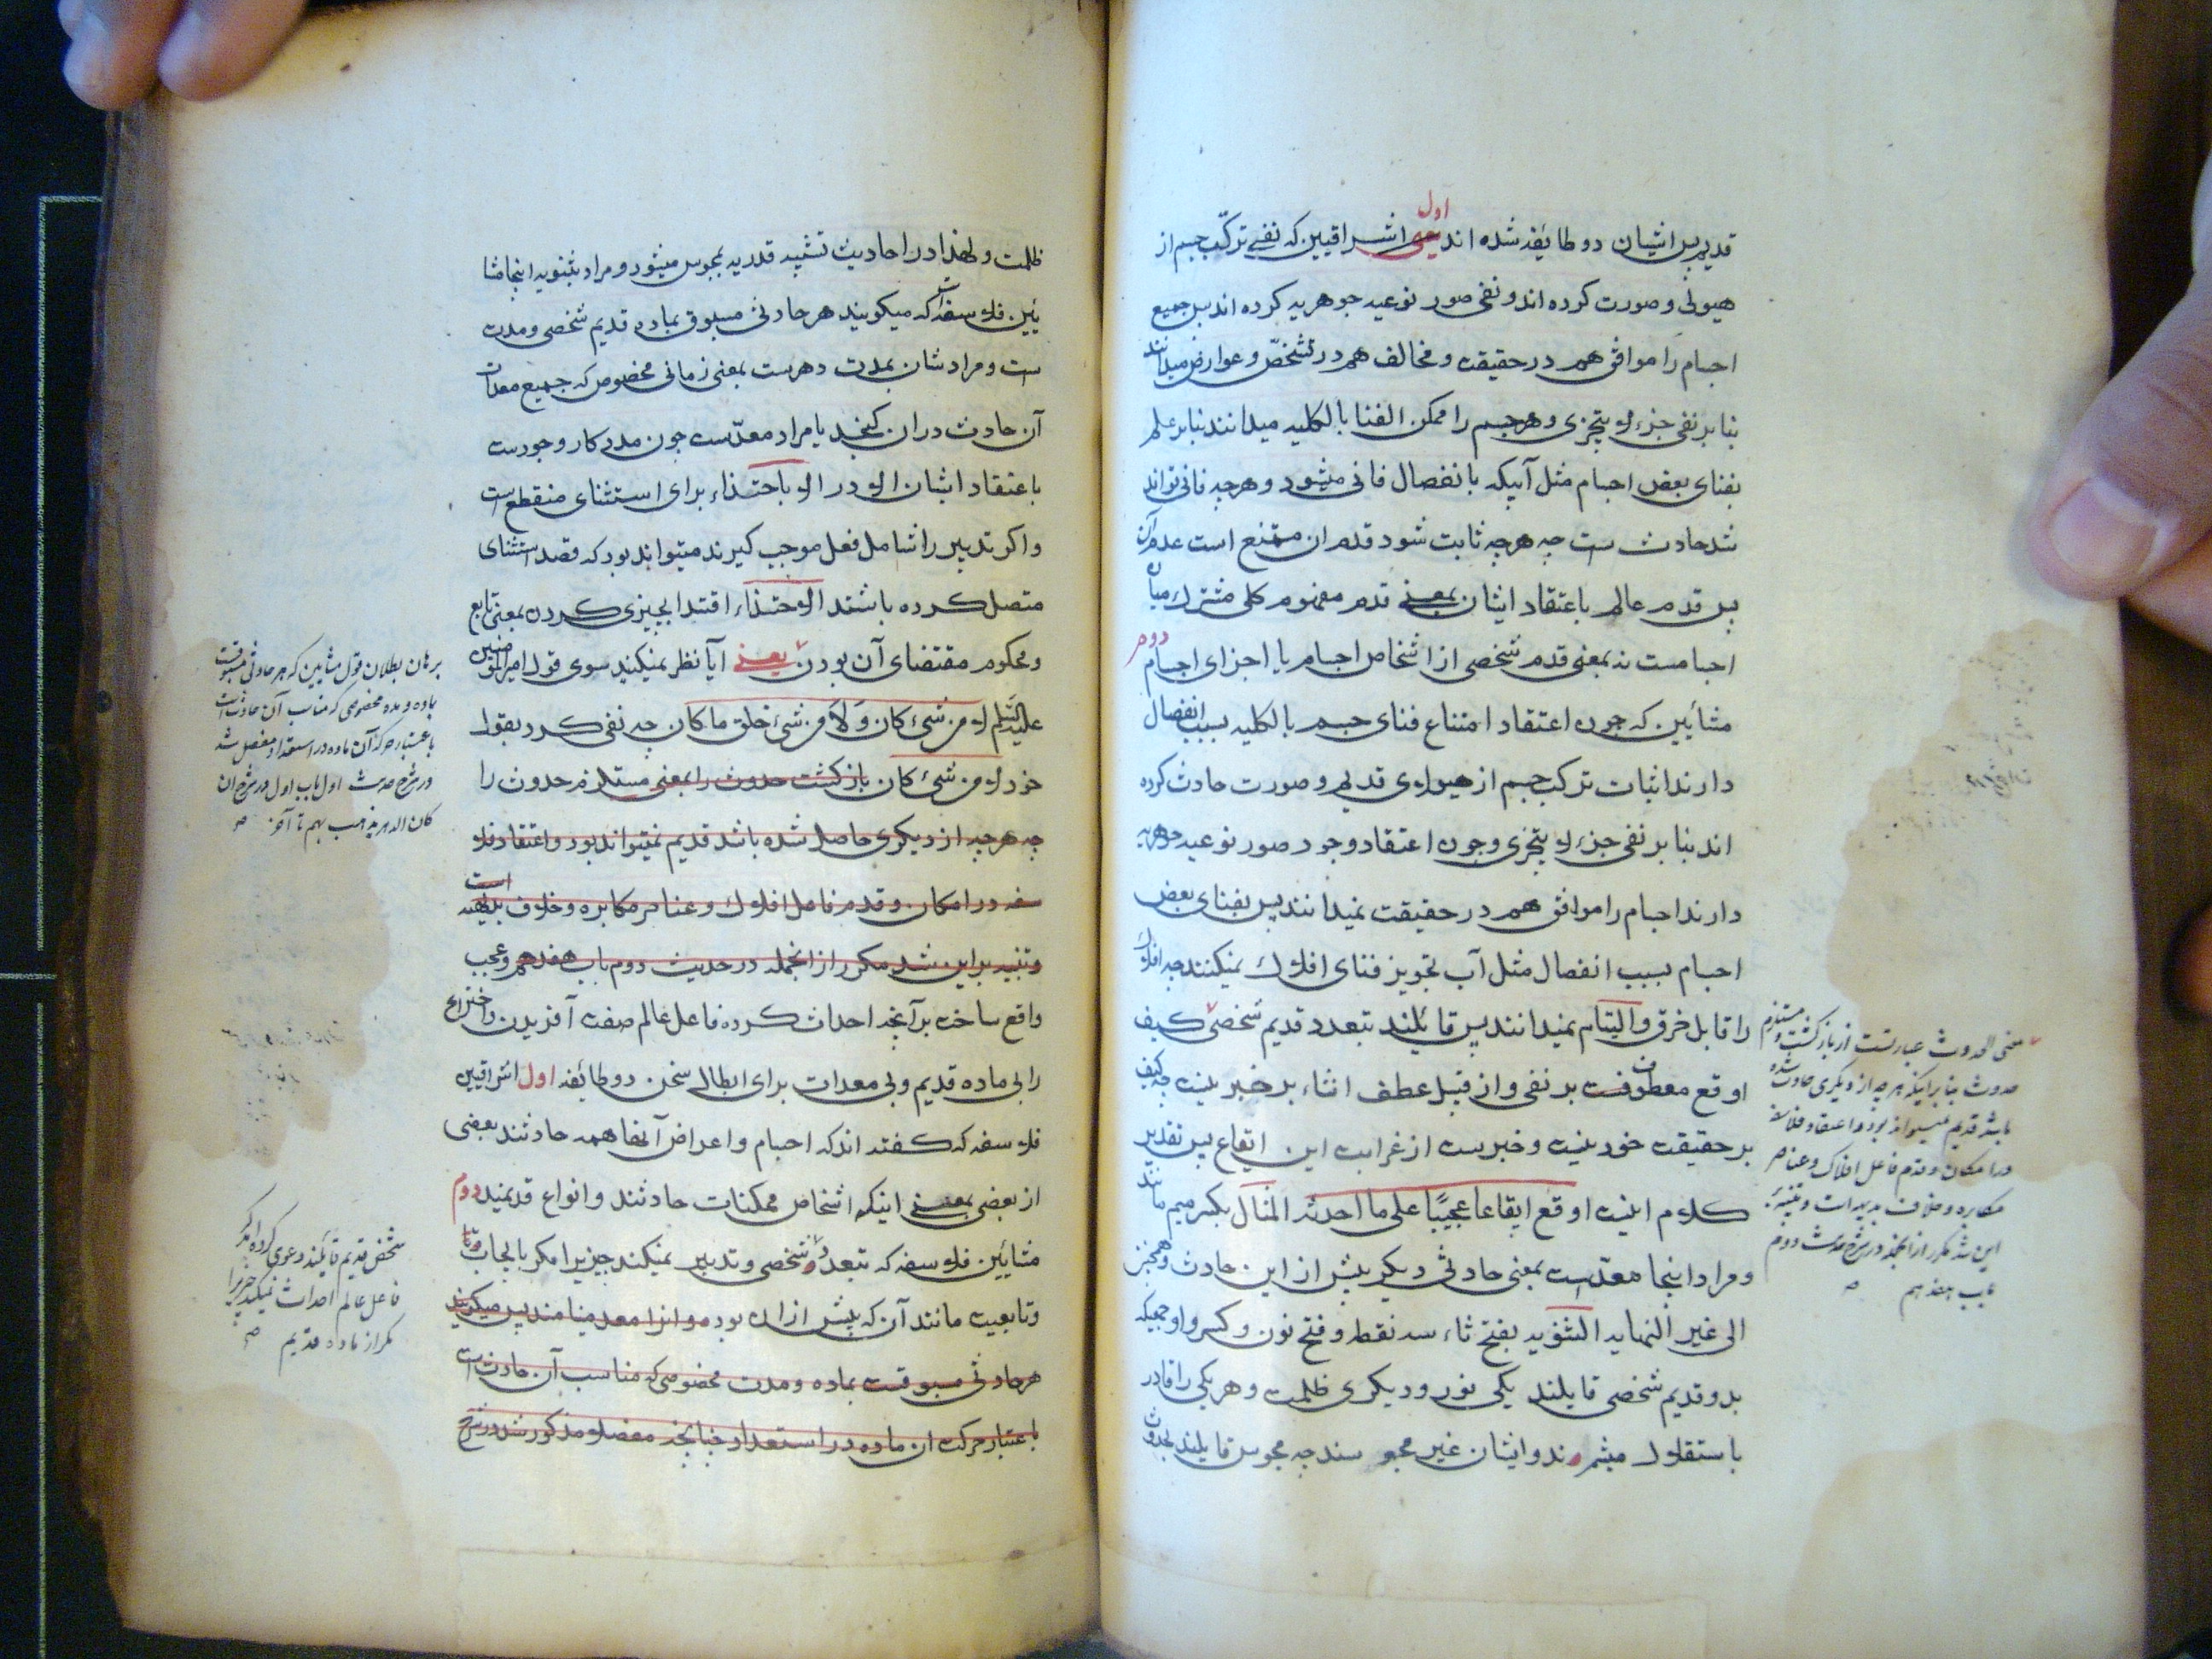 اول
قدیم پس ایشان دو طایفه شده اند یعنی اشراقیین که نفی ترکّب جسم از
هیولی و صورت کرده اند و نفی صور نوعیه جوهریه کرده اند پس جمیع
اجسام را موافق هم در حقیقت و مخالف هم در تشخّص و عوارض میدانند
بنا بر نفی جزء لا یتجزی و هر جسم را ممکن الفنا بالکلیه میدانند بنا بر علم
بفنای بعض اجسام مثل آبیکه بانفصال فانی میشود و هرچه فانی تواند
شد حادث ست چه هرچه ثابت شود قدم ان ممتنع است عدم آن
پس قدم عالم باعتقاد ایشان بمعنی قدم مفهوم کلی مشترك میان
اجسامست نه بمعنی قدم شخصی از اشخاص اجسام یا اجزای اجسام دوم
مشایین که چون اعتقاد امتناع فنای جسم بالکلیه بسبب انفصال
دارند اثبات ترکب جسم از هیولای قدیم و صورت حادث کرده
اند بنا بر نفی جزء لا یتجزی و چون اعتقاد وجود صور نوعیه جوهریه
دارند اجسام را موافق هم در حقیقت نمیدانند پس بفنای بعض
اجسام بسبب انفصال مثل آب تجویز فنای افلاك نمیکنند چه افلاك
را قابل خرق و التیام نمیدانند پس قایلند بتعدد قدیم شخصی کیف
اوقع معطوفست بر نفی و از قبیل عطف انشاء بر خبر نیست چه کیف
بر حقیقت خود نیست و خبرست از غرابت این ایقاع پس تقدیر
کلام اینست اوقع ایقاعا عجیبًا علی ما احدثه المثال بکسر میم مانند
و مراد اینجا معدّست بمعنی حادثی دیکر پیش از این حادث و همچنین
الی غیر النهایه الثنویه بفتح ثاء سه نقطه و فتح نون و کسر واو جمعیکه
بدو قدیم شخصی قایلند یکی نور و دیکری ظلمت و هر یکی را قادر
باستقلال میشمرند و ایشان غیر مجوسند چه مجوس قایلند بحدوث
معنی الحدوث عبارتست از بازکشت و مستلزم
حدوث بنا بر اینکه هرچه از دیکری حادث شده
باشد قدیم نمیتواند بود و اعتقاد فلاسفه
در امکان و قدم فاعل افلاک و عناصر
مکابره و خلاف بدیهیات و تنبیه بر
این شد مکرر از انجمله در شرح حدیث دوم
باب هفدهم
ظلمت و لهذا در احادیث تشبیه قدریه بمجوس میشود و مراد بثنویه اینجا مشا
یین فلاسفه است که میکویند هر حادثی مسبوق بماده قدیم شخصی و مدت
ست و مرادشان بمدت دهرست بمعنی زمانی مخصوص که جمیع معدات
آن حادث دران کنجد یا مراد معدّست چون مددکار وجودست
باعتقاد ایشان الا در الا باحتذاء برای استثنای منقطع ست
و اکر تدبیر را شامل فعل موجب کیرند میتواند بود که قصد استثنای
متصل کرده باشند الاحتذاء اقتدا بچیزی کردن بمعنی تابع
و محکوم مقتضای آن بودن یعنی آیا نظر نمیکنید سوی قول امیر المؤمنین
علیه السّلم لا من شیء کان وَلا من شیء خلق ما کان چه نفی کرد بقول
خود لا من شیء کان بازکشت حدوث را بمعنی مستلزم حدوث را
چه هرچه از دیکری حاصل شده باشد قدیم نمیتواند بود و اعتقاد فلا
سفه در امکان و قدم فاعل افلاك و عناصر مکابره و خلاف بدیهه است
و تنبیه بر این شد مکرر از انجمله در حدیث دوم باب هفدهم و عجب
واقع ساخت بر آنچه احداث کرده فاعل عالم صفت آفریدن و اختراع
را بی ماده قدیم و بی معدات برای ابطال سخن دو طایفه اول اشراقیین
فلاسفه که کفته اند که اجسام و اعراض آنها همه حادثند بعضی
از بعضی بمعنی اینکه اشخاص ممکنات حادثند و انواع قدیمند دوم
مشایین فلاسفه که بتعدد شخصی و تدبیر نمیکند چیزیرا مکر بایجاب
و تابعیت مانند آن که پیش از ان بوده و انرا معد مینامند پس میکویند
هر حادثی مسبوقست بماده و مدت مخصوصی که مناسب آن حادث است
باعتبار حرکت ان ماده در استعداد چنانچه مفصلا مذکور شد در شرح
برهان بطلان قول مشایین که هر حادثی مسبوقست
بماده و مدت مخصوصی که مناسب آن حادث است
باعتبار حرکت آن ماده در استعداد مفصل شد
در شرح حدیث اول باب اول در شرح ان
کان الدهر یذهب بهم تا آخر
شخص قدیم قایلند دعوی کرده اند که
فاعل عالم احداث نمیکند چیزیرا
مکر از ماده قدیم